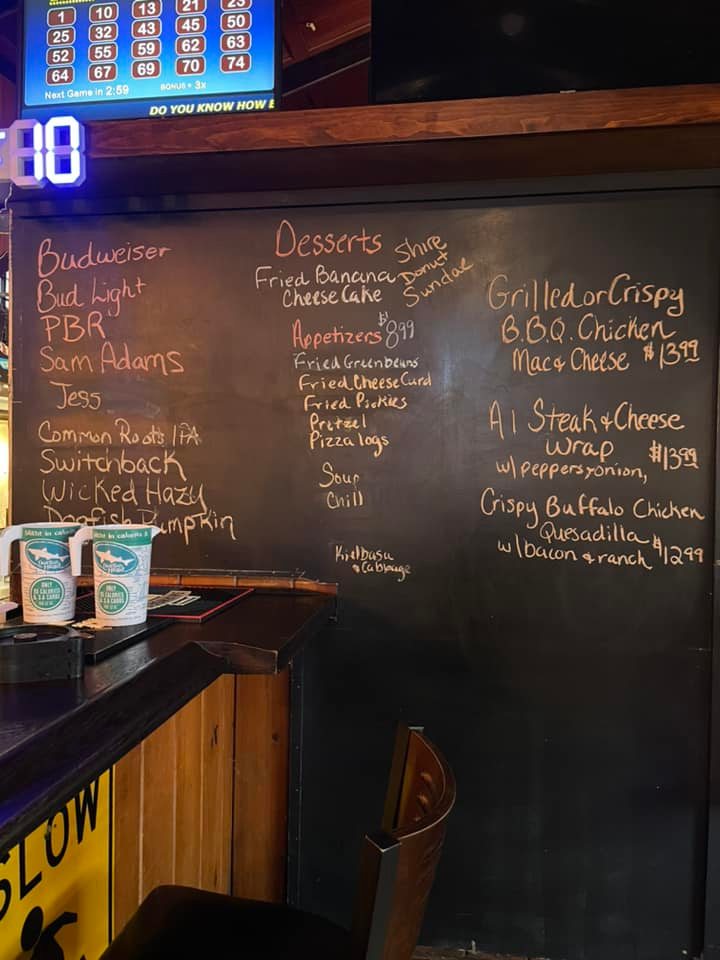 1 10 13 21 23
25 32 43 45 50
52 55 59 62 63
64 67 69 70 74
Next Game in 2:59
BONUS = 3x
DO YOU KNOW HOW
10
Budweiser
Bud Light
PBR
Sam Adams
Jess
Common Roots IPA
Switchback
Wicked Hazy
Dogfish Pumpkin
Desserts
Fried Banana
Cheese Cake
Shire
Donut
Sundae
Appetizers $8.99
Fried Greenbeans
Fried Cheese Curd
Fried Pickles
Pretzel
Pizza logs
Soup
Chili
Kielbasa
& Cabbage
Grilled or Crispy
B.B.Q. Chicken
Mac & Cheese $13.99
A1 Steak & Cheese
Wrap $13.99
w/ peppers y onion,
Crispy Buffalo Chicken
Quesadilla $12.99
w/ bacon & ranch
Dogfish Head
ONLY
95 CALORIES
& 3.6 CARBS
SLOW